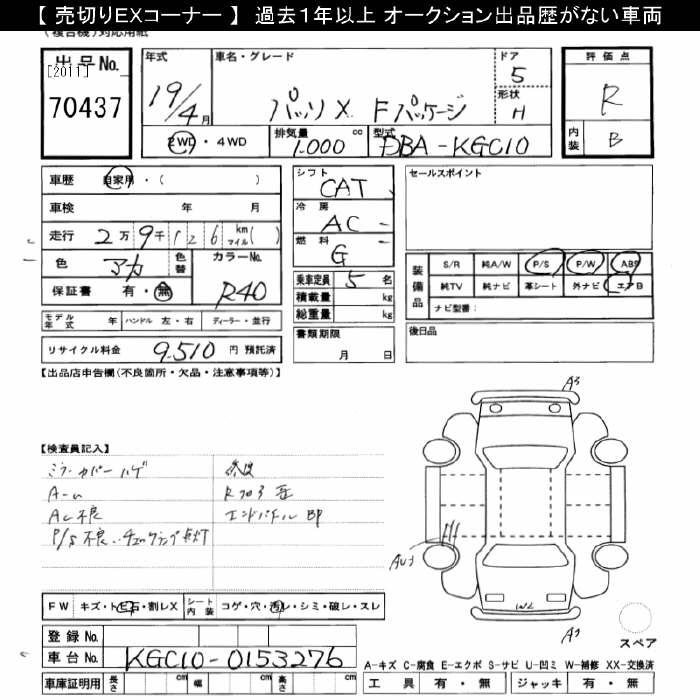 【 売切りEXコーナー 】 過去1年以上 オークション出品歴がない車両
(複合機)対応用紙
出品No.
[2011]
70437
年式
19/4月
車名・グレード
パッソX Fパッケージ
ドア
5
形状
H
評価点
R
内装
B
2WD・4WD
排気量 1.000 cc
型式 DBA-KGC10
車歴 自家用・( )
車検 年 月
走行 2万9千126 km マイル( )
色 アカ
色替
カラーNo.
R40
保証書 有・無
モデル年式 年 ハンドル 左・右 ディーラー・並行
リサイクル料金 9.510 円 預託済
シフト
CAT
冷房
AC
燃料
G
乗車定員 5 名
積載量 kg
総重量 kg
書類期限
月 日
セールスポイント
装備品
S/R 純A/W P/S P/W ABS
純TV 純ナビ 革シート 外ナビ エアB
ナビ型番:
後日品
【出品店申告欄(不良箇所・欠品・注意事項等)】
【検査員記入】
ミラーカバーハゲ
AC不良
P/S不良
エンドパネルBP
A3
AU3
W2
A3
スペア
FW キズ・トビ石・割レX
シート内装 コゲ・穴・汚レ・シミ・破レ・スレ
登録No.
車台No. KGC10-0153276
車庫証明用 長さ cm 幅 cm 高さ cm
A-キズ C-腐食 E-エクボ S-サビ U-凹ミ W-補修 XX-交換済
工具 有・無 ジャッキ 有・無